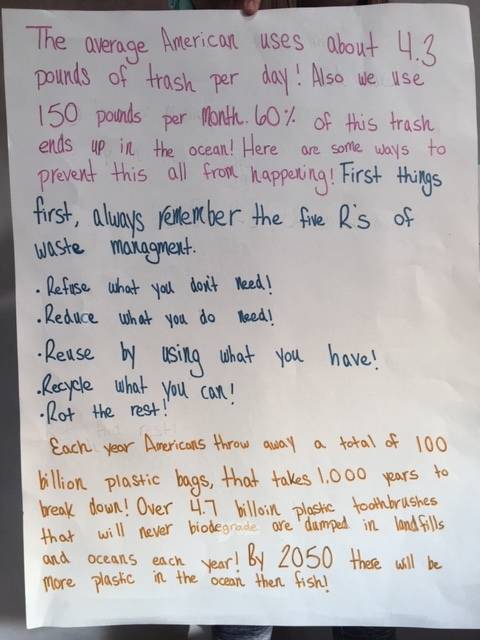 The average American uses about 4.3
pounds of trash per day! Also we use
150 pounds per Month. 60% of this trash
ends up in the ocean! Here are some ways to
prevent this all from happening! First things
first, always remember the five R's of
waste managment.
• Refuse what you don't Need!
• Reduce what you do Need!
• Reuse by using what you have!
• Recycle what you can!
• Rot the rest!
Each year Americans throw away a total of 100
billion plastic bags, that takes 1,000 years to
break down! Over 4.7 billoin plastic toothbrushes
that will never biodegrade are dumped in landfills
and oceans each year! By 2050 there will be
more plastic in the ocean then fish!